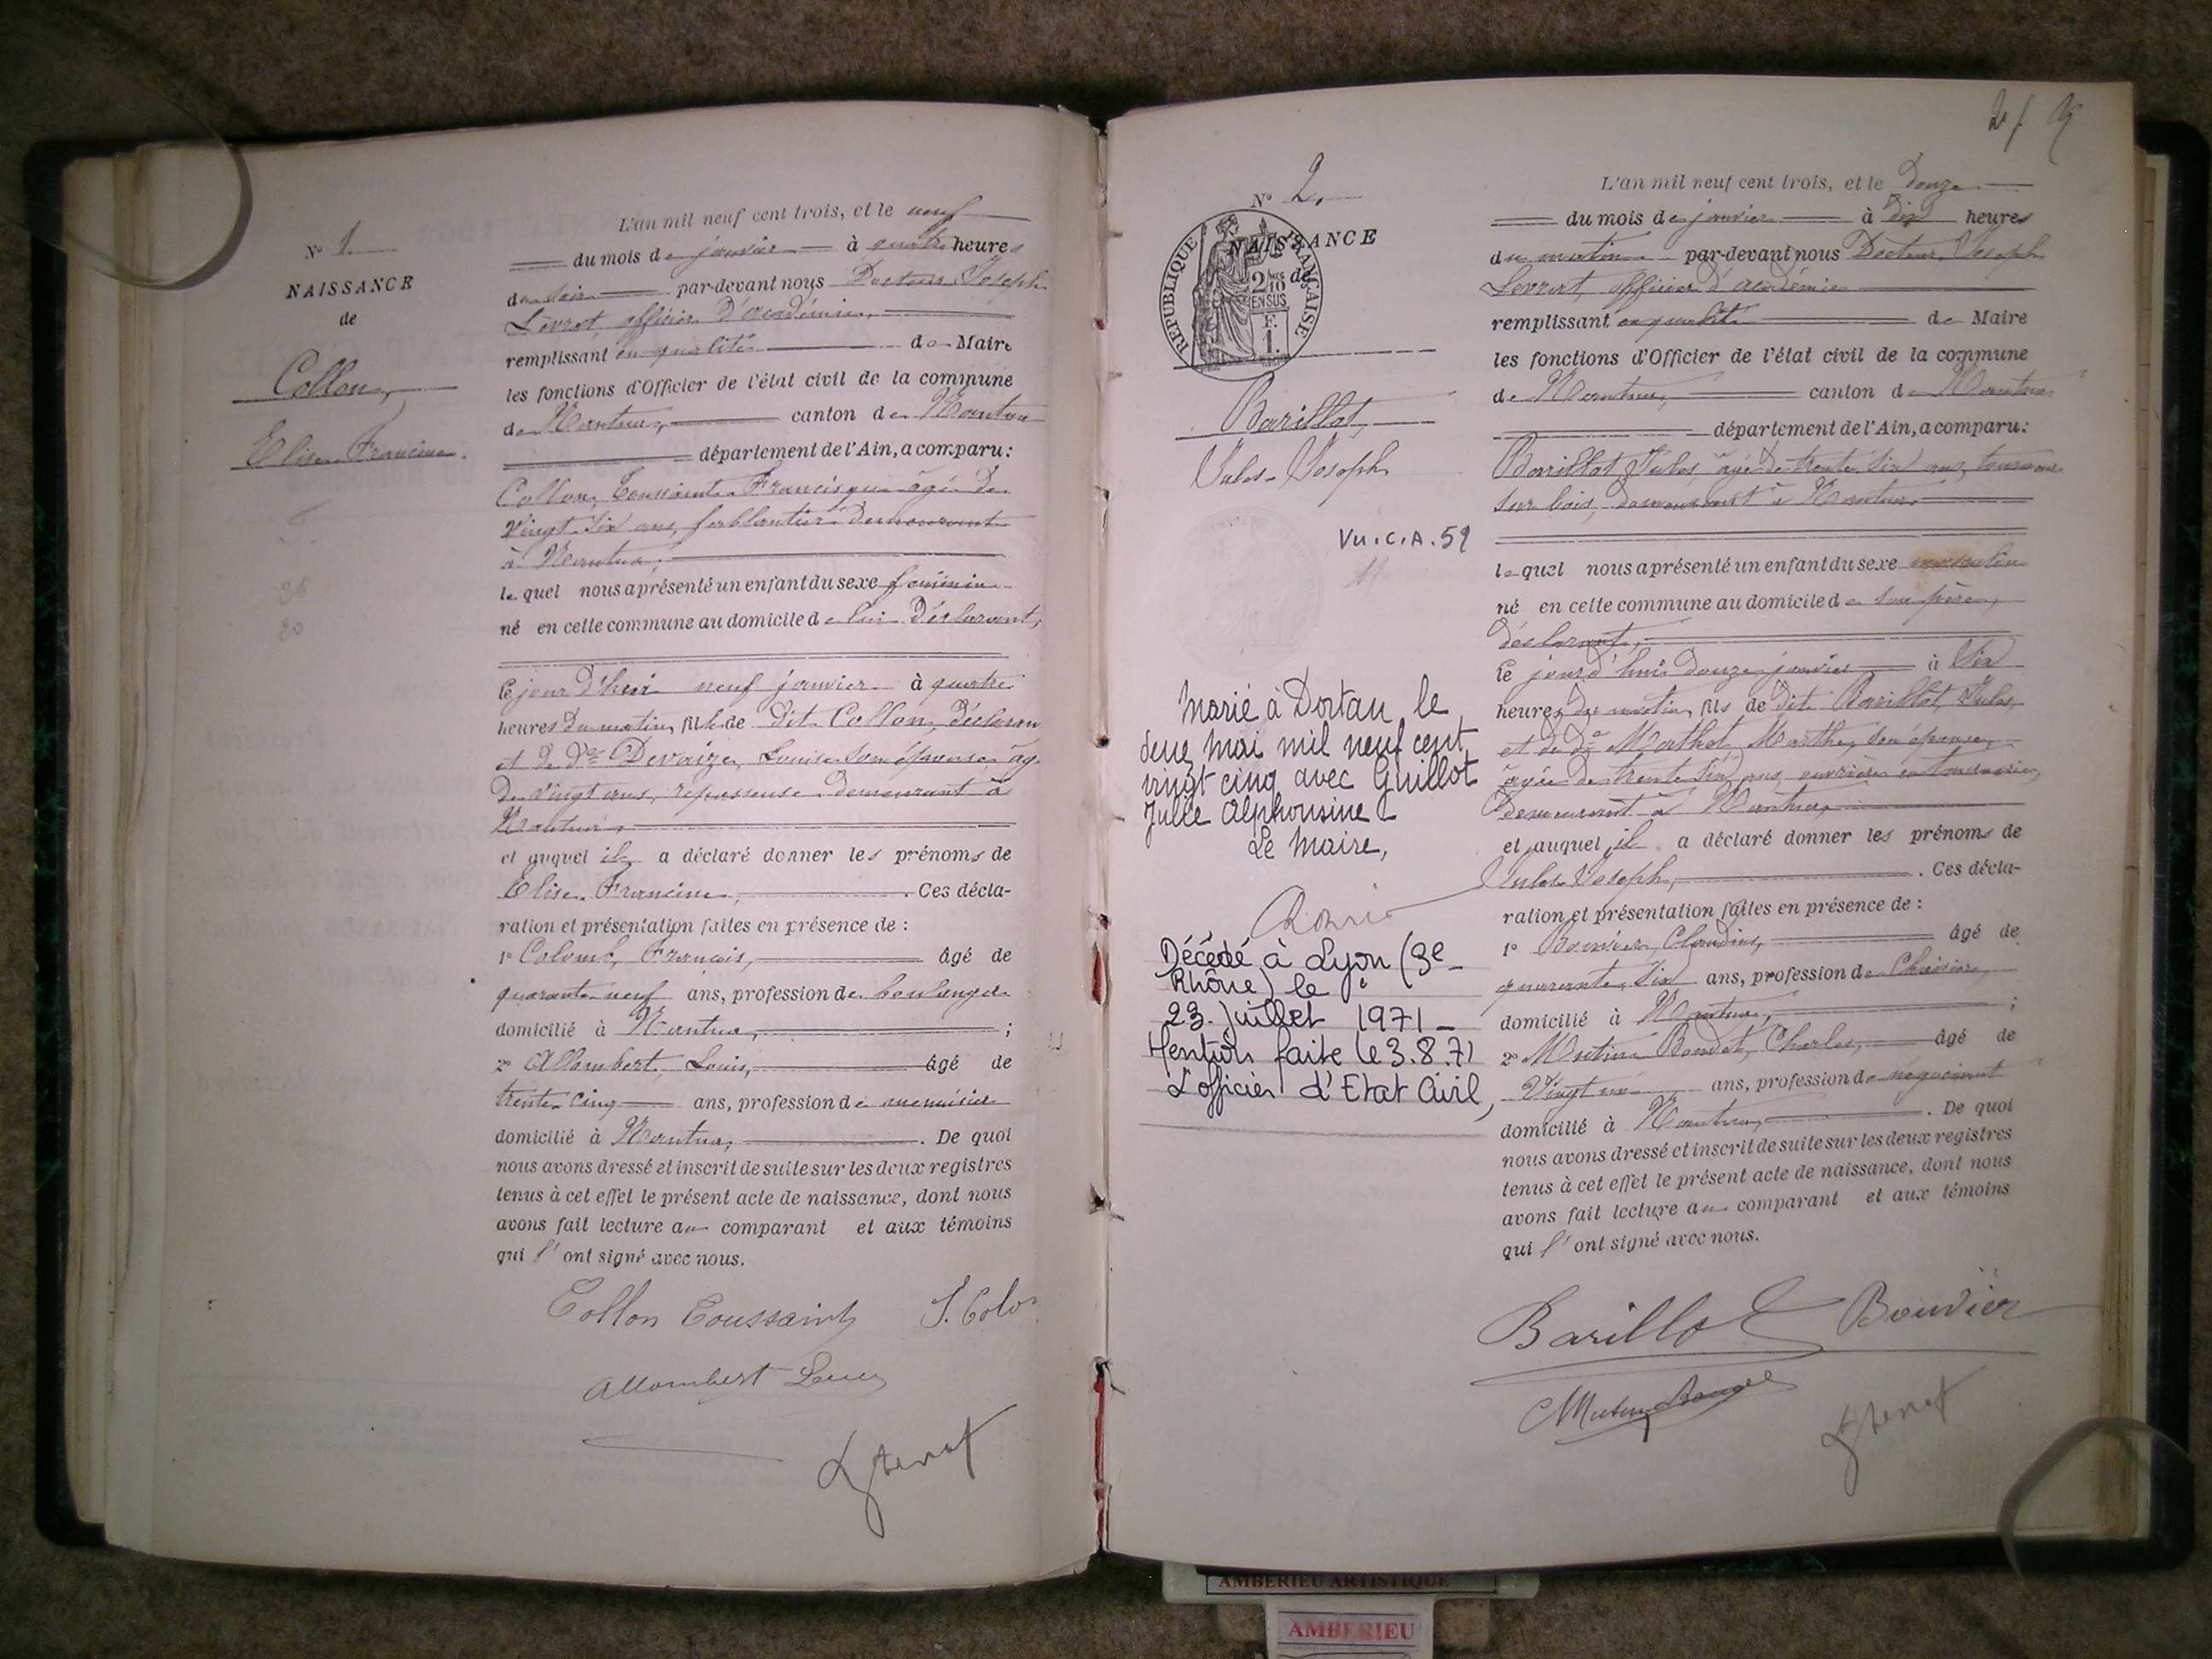 L'an mil neuf cent trois, et le neuf
N° 1
du mois de janvier à quatre heures
NAISSANCE
du soir par-devant nous Docteur Joseph
de
Levrat officier d'académie,
remplissant en qualité de Maire
Collon,
les fonctions d'Officier de l'état civil de la commune
de Nantua, canton de Nantua
Elise Francine.
département de l'Ain, a comparu:
Collon, Toussaint Francisque âgé de
vingt six ans, ferblantier demeurant
à Nantua,
lequel nous a présenté un enfant du sexe féminin
né en cette commune au domicile de lui déclarant,
Ce jour d'hui neuf janvier à quatre
heures du matin, fille de dit Collon, déclarant
et de De Devaize, Louise son épouse âg.
de vingt ans, repasseuse demeurant à
Nantua,
et auquel il a déclaré donner les prénoms de
Elise Francine, . Ces décla-
ration et présentation faites en présence de :
1° Colomb, François, âgé de
quarante neuf ans, profession de boulanger
domicilié à Nantua, ;
2° Allombert, Louis, âgé de
trente cinq ans, profession de menuisier
domicilié à Nantua, . De quoi
nous avons dressé et inscrit de suite sur les deux registres
tenus à cet effet le présent acte de naissance, dont nous
avons fait lecture au comparant et aux témoins
qui l'ont signé avec nous.
Collon Toussaint
Allombert Louis
N° 2.
NAISSANCE
de
REPUBLIQUE FRANÇAISE
2/10 EN SUS
F. 1.
Barillot,
Jules-Joseph
Vu.C.A.59
Marié à Dortan le
deux mai mil neuf cent
vingt cinq avec Guillot
Julie Alphonsine
Le Maire,
Décédé à Lyon (3e
Rhône) le
23 juillet 1971
Mention faite le 3.8.71
L'officier d'Etat Civil,
L'an mil neuf cent trois, et le Douze
du mois de janvier à dix heures
du matin par-devant nous Docteur Joseph
Levrat, officier d'académie
remplissant en qualité de Maire
les fonctions d'Officier de l'état civil de la commune
de Nantua, canton de Nantua
département de l'Ain, a comparu:
Barillot Jules âgé de trente six ans, tourneur
sur bois, demeurant à Nantua,
lequel nous a présenté un enfant du sexe masculin
né en cette commune au domicile de son père,
déclarant,
Ce jour d'hui douze janvier à six
heures du matin, fils de dit Barillot, Jules,
et de De Mathot, Marthe, son épouse,
âgée de trente six ans, ouvrière en
demeurant à Nantua,
et auquel il a déclaré donner les prénoms de
Jules Joseph, . Ces décla-
ration et présentation faites en présence de :
1° Bouvier, Claudius, âgé de
quarante six ans, profession de
domicilié à Nantua, ;
2° Charles, âgé de
Vingt ans, profession de négociant
domicilié à Nantua, . De quoi
nous avons dressé et inscrit de suite sur les deux registres
tenus à cet effet le présent acte de naissance, dont nous
avons fait lecture au comparant et aux témoins
qui l'ont signé avec nous.
Barillot Bouvier
AMBERIEU ARTISTIQUE
AMBERIEU